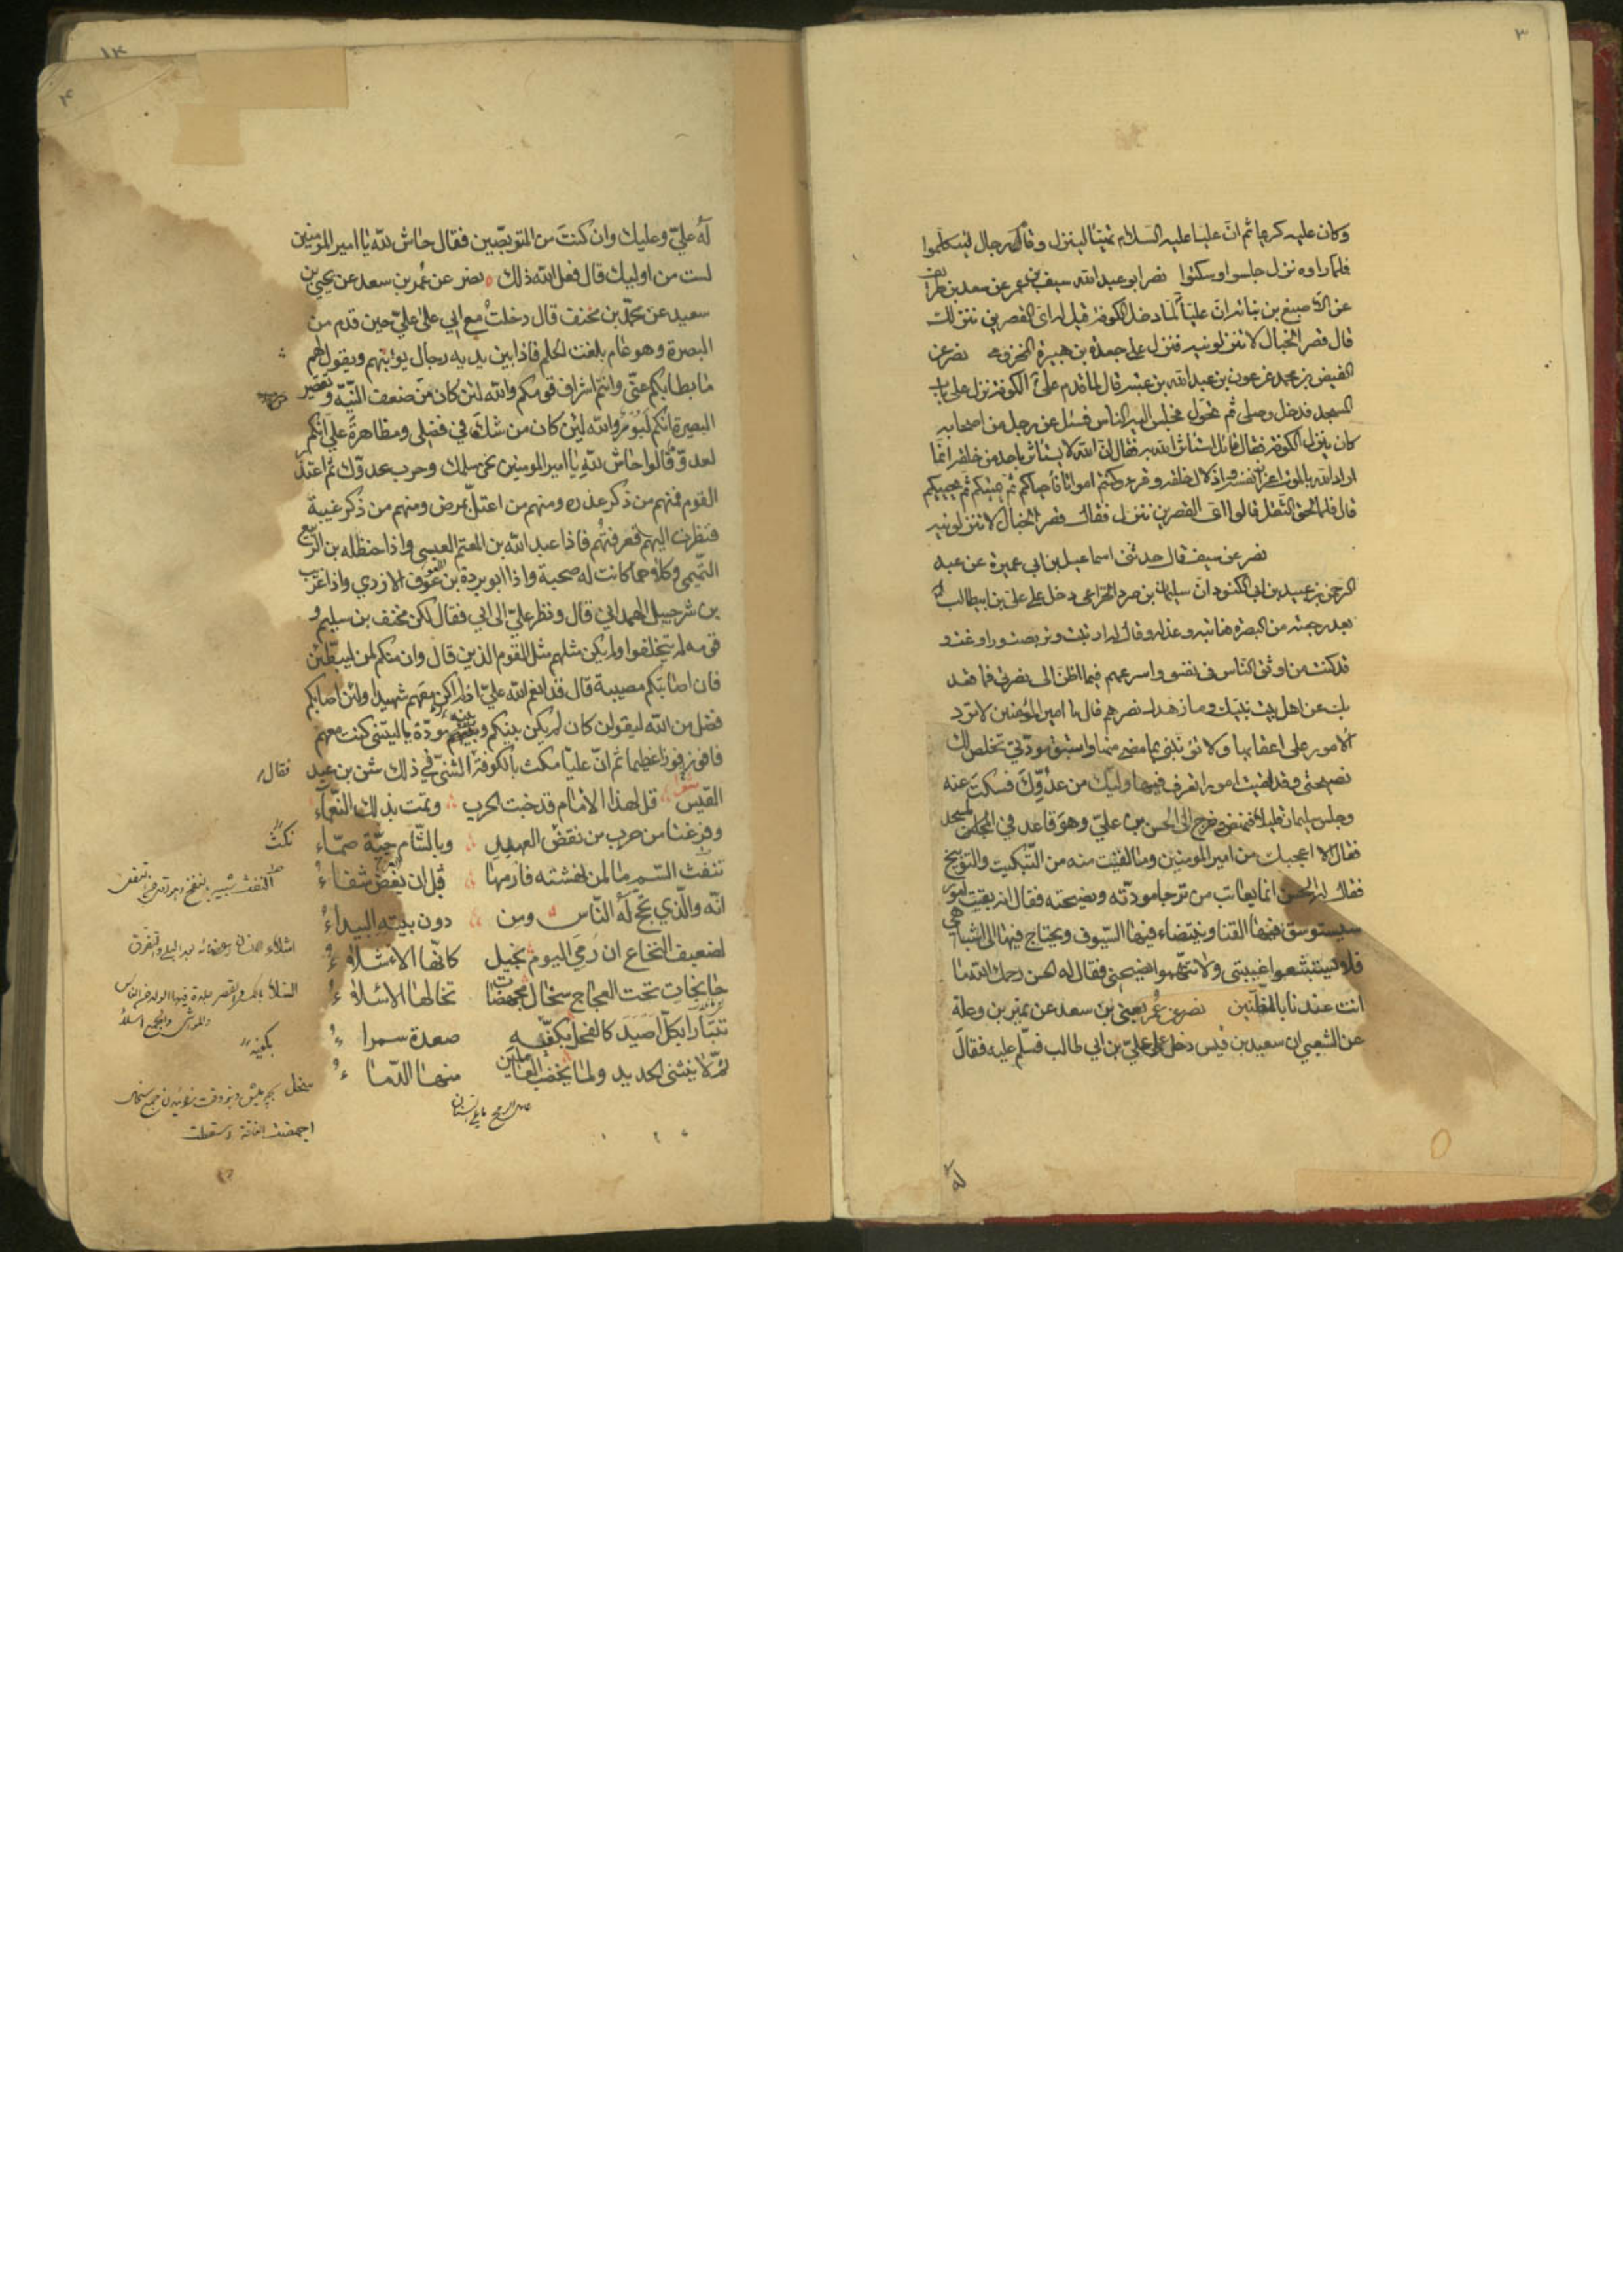 ٣
وكان عليه كرها ثم ان عليا عليه السلام تهيأ لينزل وقام رجال ليتكلموا
فلما راوه نزل جلسوا وسكتوا نصر ابو عبد الله سيف بن عمر عن سعد بن طريف
عن الاصبغ بن نباته ان عليّا لما دخل الكوفه قيل له اى القصرين ننزلك
قال قصر الخبال لا تنزلونيه فنزل على جعده بن هبيرة المخزومي نصر عن
الفيض بن محمد عن عون بن عبد الله بن عتبه قال لما قدم علىّ الكوفه نزل على باب
المسجد فدخل وصلى ثم تحول فجلس اليه الناس فسئل عن رجل من اصحابه
كان ينزل الكوفه فقال قائل استاثر الله به فقال ان الله لا يستاثر باحد من خلقه انما
اراد الله بالموت اعزاز نفسه واذلال خلقه وقرء وكنتم امواتا فاحياكم ثم يميتكم ثم يحييكم
قال فلما لحق الثقل قالوا اى القصرين تنزل فقال قصر الخبال لا تنزلونيه
نصر عن سيف قال حدثنى اسماعيل بن ابى عميرة عن عبد
الرحمن بن عبيد بن ابى الكنود ان سليمان بن صرد الخزاعى دخل على على بن ابيطالب
بعد رجعته من البصره فعاتبه وعذله وقال له ارتبت وتربصت وراوغت و
قد كنت من اوثق الناس فى نفسى واسرعهم فيما اظن الى نصرتى فما قعد
بك عن اهل بيت نبيك وما زهدك فى نصرهم قال يا امير المؤمنين لا تردّ
الامور على اعقابها ولا تؤنبنى بما مضى منها واستبق مودّتى تخلص لك
نصيحتى وقد بقيت امور تعرف فيها وليّك من عدوّك فسكت عنه
وجلس سليمان قليلا ثم نهض فخرج الى الحسن بن علىّ وهو قاعد في المسجد
فقال الا اعجبك من امير المومنين وما لقيت منه من التّبكيت والتّوبيخ
فقال له الحسن انما يعاتب من ترجا مودّته ونصيحته فقال انه بقيت امور
سيستوسق فيها القنا وينتضاء فيها السّيوف ويحتاج فيها الى اشباهى
فلا تستغشّوا غيبتى ولا تتّهموا نصيحتى فقال له الحسن رحمك الله ما
انت عندنا بالمظّنين نصر عن عُمر يعني بن سعد عن نمير بن وعلة
عن الشعبي ان سعيد بن قيس دخل على علىّ بن ابي طالب فسلّم عليه فقال
له
٤
لهُ عليّ وعليك وان كنت من المتربّصين فقال حاش لله يا امير المومنين
لست من اوليك قال فعل الله ذلك نصر عن عُمر بن سعد عن يحيى بن
سعيد عن محمّد بن مخنف قال دخلتُ مع ابي على عليّ حين قدم من
البصرة وهو عام بلغت الحلم فاذا بين يديه رجال يونبهم ويقول لهم
ما بطا بكم عنّى وانتم اشراف قومكم والله لئن كان من ضعف النّيّة وتقصير
البصيرة انكم لبُوَّرٌ والله لئِن كان من شك في فضلى ومظاهرةً علىّ انكم
لعدوّ قالوا حاش للهِ يا امير المومنين نحن سلمك وحرب عدوّك ثم اعتذر
القوم فمنهم من ذكر عذره ومنهم من اعتلّ بمرض ومنهم من ذكر غيبة
فنظرت اليهم فعرفتهُم فاذا عبد الله بن المعتم العبسى واذا حنظله بن الرّبيع
التّميمى وكلاهما كانت له صحبة واذا ابو بردة بن عوف الازدي واذا غريب
بن شرحبيل الهمداني قال ونظر علىّ إلى ابي فقال لكن مخنف بن سليم و
قومه لم يتخلفوا ولم يكن مثلهم مثل القوم الذين قال وان منكم لمن ليبطّئن
فان اصابتكم مصيبة قال قد انعم الله علىّ اذ لم اكن معهم شهيدا ولئن اصابكم
فضل من الله ليقولن كان لم يكن بينكم وبينه مودّة يا ليتنى كنت معهم
فافوز فوزا عظيما ثم انّ عليّا مكث بالكوفة فقال الشنىّ في ذلك شن بن عبد
القيس قل لهذا الامام قد خبت الحرب وتمت بذلك النّعماء
وفرغنا من حرب من نقض العهد وبالشّام حيّة صمّاء
تنفث السّم ما لمن نهشته فارمها قبل ان تعضّ شفاءُ
انّه والّذي يحج له النّاس ومن دون بيته البيداءُ
لضعيف النخاع ان رُمي اليوم بخيل كانّها الاشلاءُ
جانحات تحت العجاج سخال مجهضات تخالها الاسلاءُ
تتبّارا بكلّ اصيَد كالفحل بكفّيه صعدة سمراءُ
ثمّ لا ينثنى الحديد ولما يخضب العاملين منها الدّماءُ
فقال
نكث
بكفيه
اجهضت الناقة اسقطت